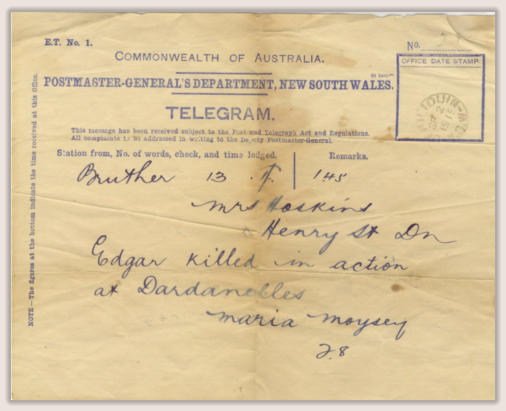 E.T. No. 1.
No.
COMMONWEALTH OF AUSTRALIA.
OFFICE DATE STAMP.
POSTMASTER-GENERAL'S DEPARTMENT, NEW SOUTH WALES.
TELEGRAM.
This message has been received subject to the Post and Telegraph Act and Regulations.
All complaints to be addressed in writing to the Deputy Postmaster-General.
Station from, No. of words, check, and time lodged. Remarks.
Bruther 13 145
Mrs Hoskins
Henry St Dn
Edgar killed in action
at Dardanelles
Maria Moysey
2.8
NOTE—The figures at the bottom indicate the time received at this Office.